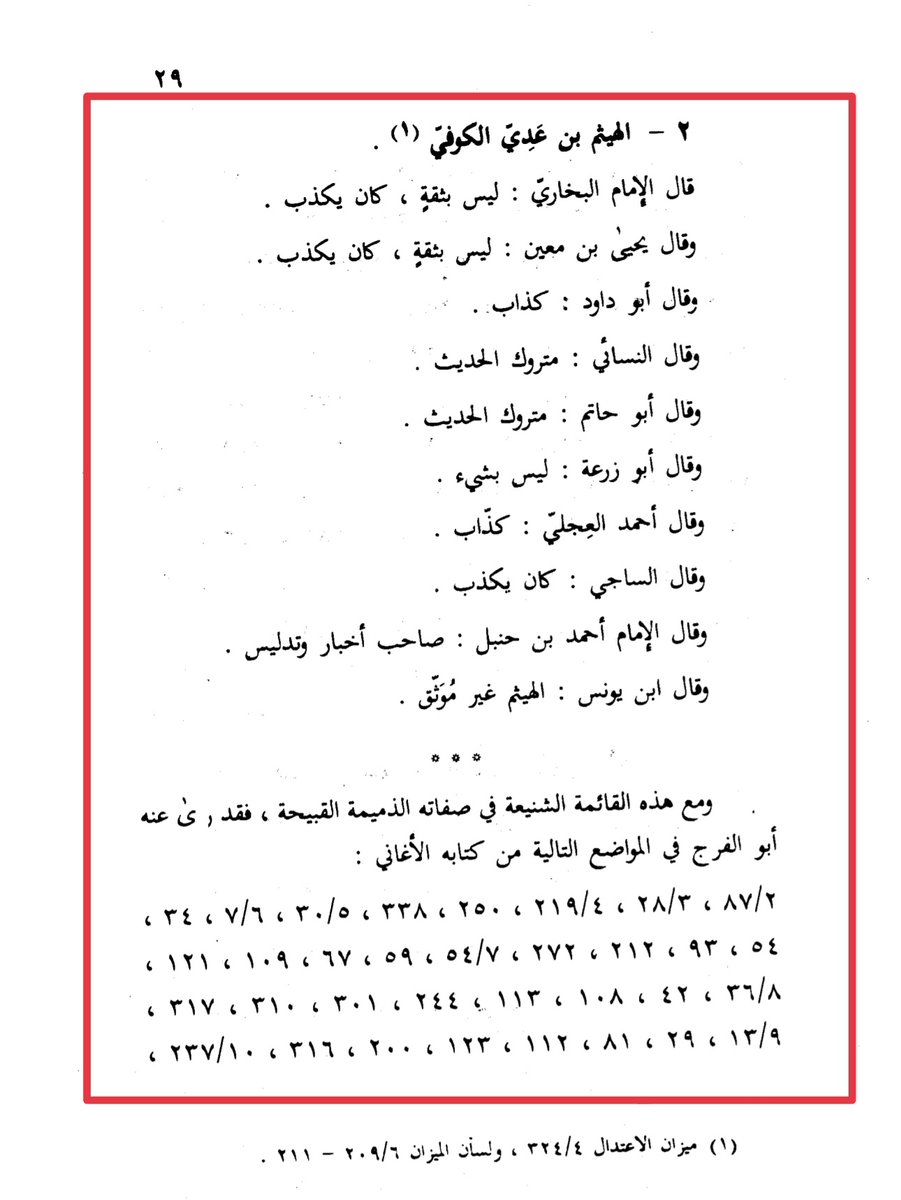 ٢٩
٢ - الهيثم بن عَدِيّ الكوفيّ (١) .
قال الإمام البخاريّ : ليس بثقةٍ ، كان يكذب .
وقال يحيىٰ بن معين : ليس بثقةٍ ، كان يكذب .
وقال أبو داود : كذاب .
وقال النسائي : متروك الحديث .
وقال أبو حاتم : متروك الحديث .
وقال أبو زرعة : ليس بشيء .
وقال أحمد العِجليّ : كذّاب .
وقال الساجي : كان يكذب .
وقال الإمام أحمد بن حنبل : صاحب أخبار وتدليس .
وقال ابن يونس : الهيثم غير مُوَثّق .
* * *
ومع هذه القائمة الشنيعة في صفاته الذميمة القبيحة ، فقد روىٰ عنه
أبو الفرج في المواضع التالية من كتابه الأغاني :
٨٧/٢ ، ٢٨/٣ ، ٢١٩/٤ ، ٢٥٠ ، ٣٣٨ ، ٣٠/٥ ، ٧/٦ ، ٣٤ ،
٥٤ ، ٩٣ ، ٢١٢ ، ٢٧٢ ، ٥٤/٧ ، ٥٩ ، ٦٧ ، ١٠٩ ، ١٢١ ،
٣٦/٨ ، ٤٢ ، ١٠٨ ، ١١٣ ، ٢٤٤ ، ٣٠١ ، ٣١٠ ، ٣١٧ ،
١٣/٩ ، ٢٩ ، ٨١ ، ١١٢ ، ١٢٣ ، ٢٠٠ ، ٣١٦ ، ٢٣٧/١٠ ،
(١) ميزان الاعتدال ٣٢٤/٤ ، ولسان الميزان ٢٠٩/٦ - ٢١١ .